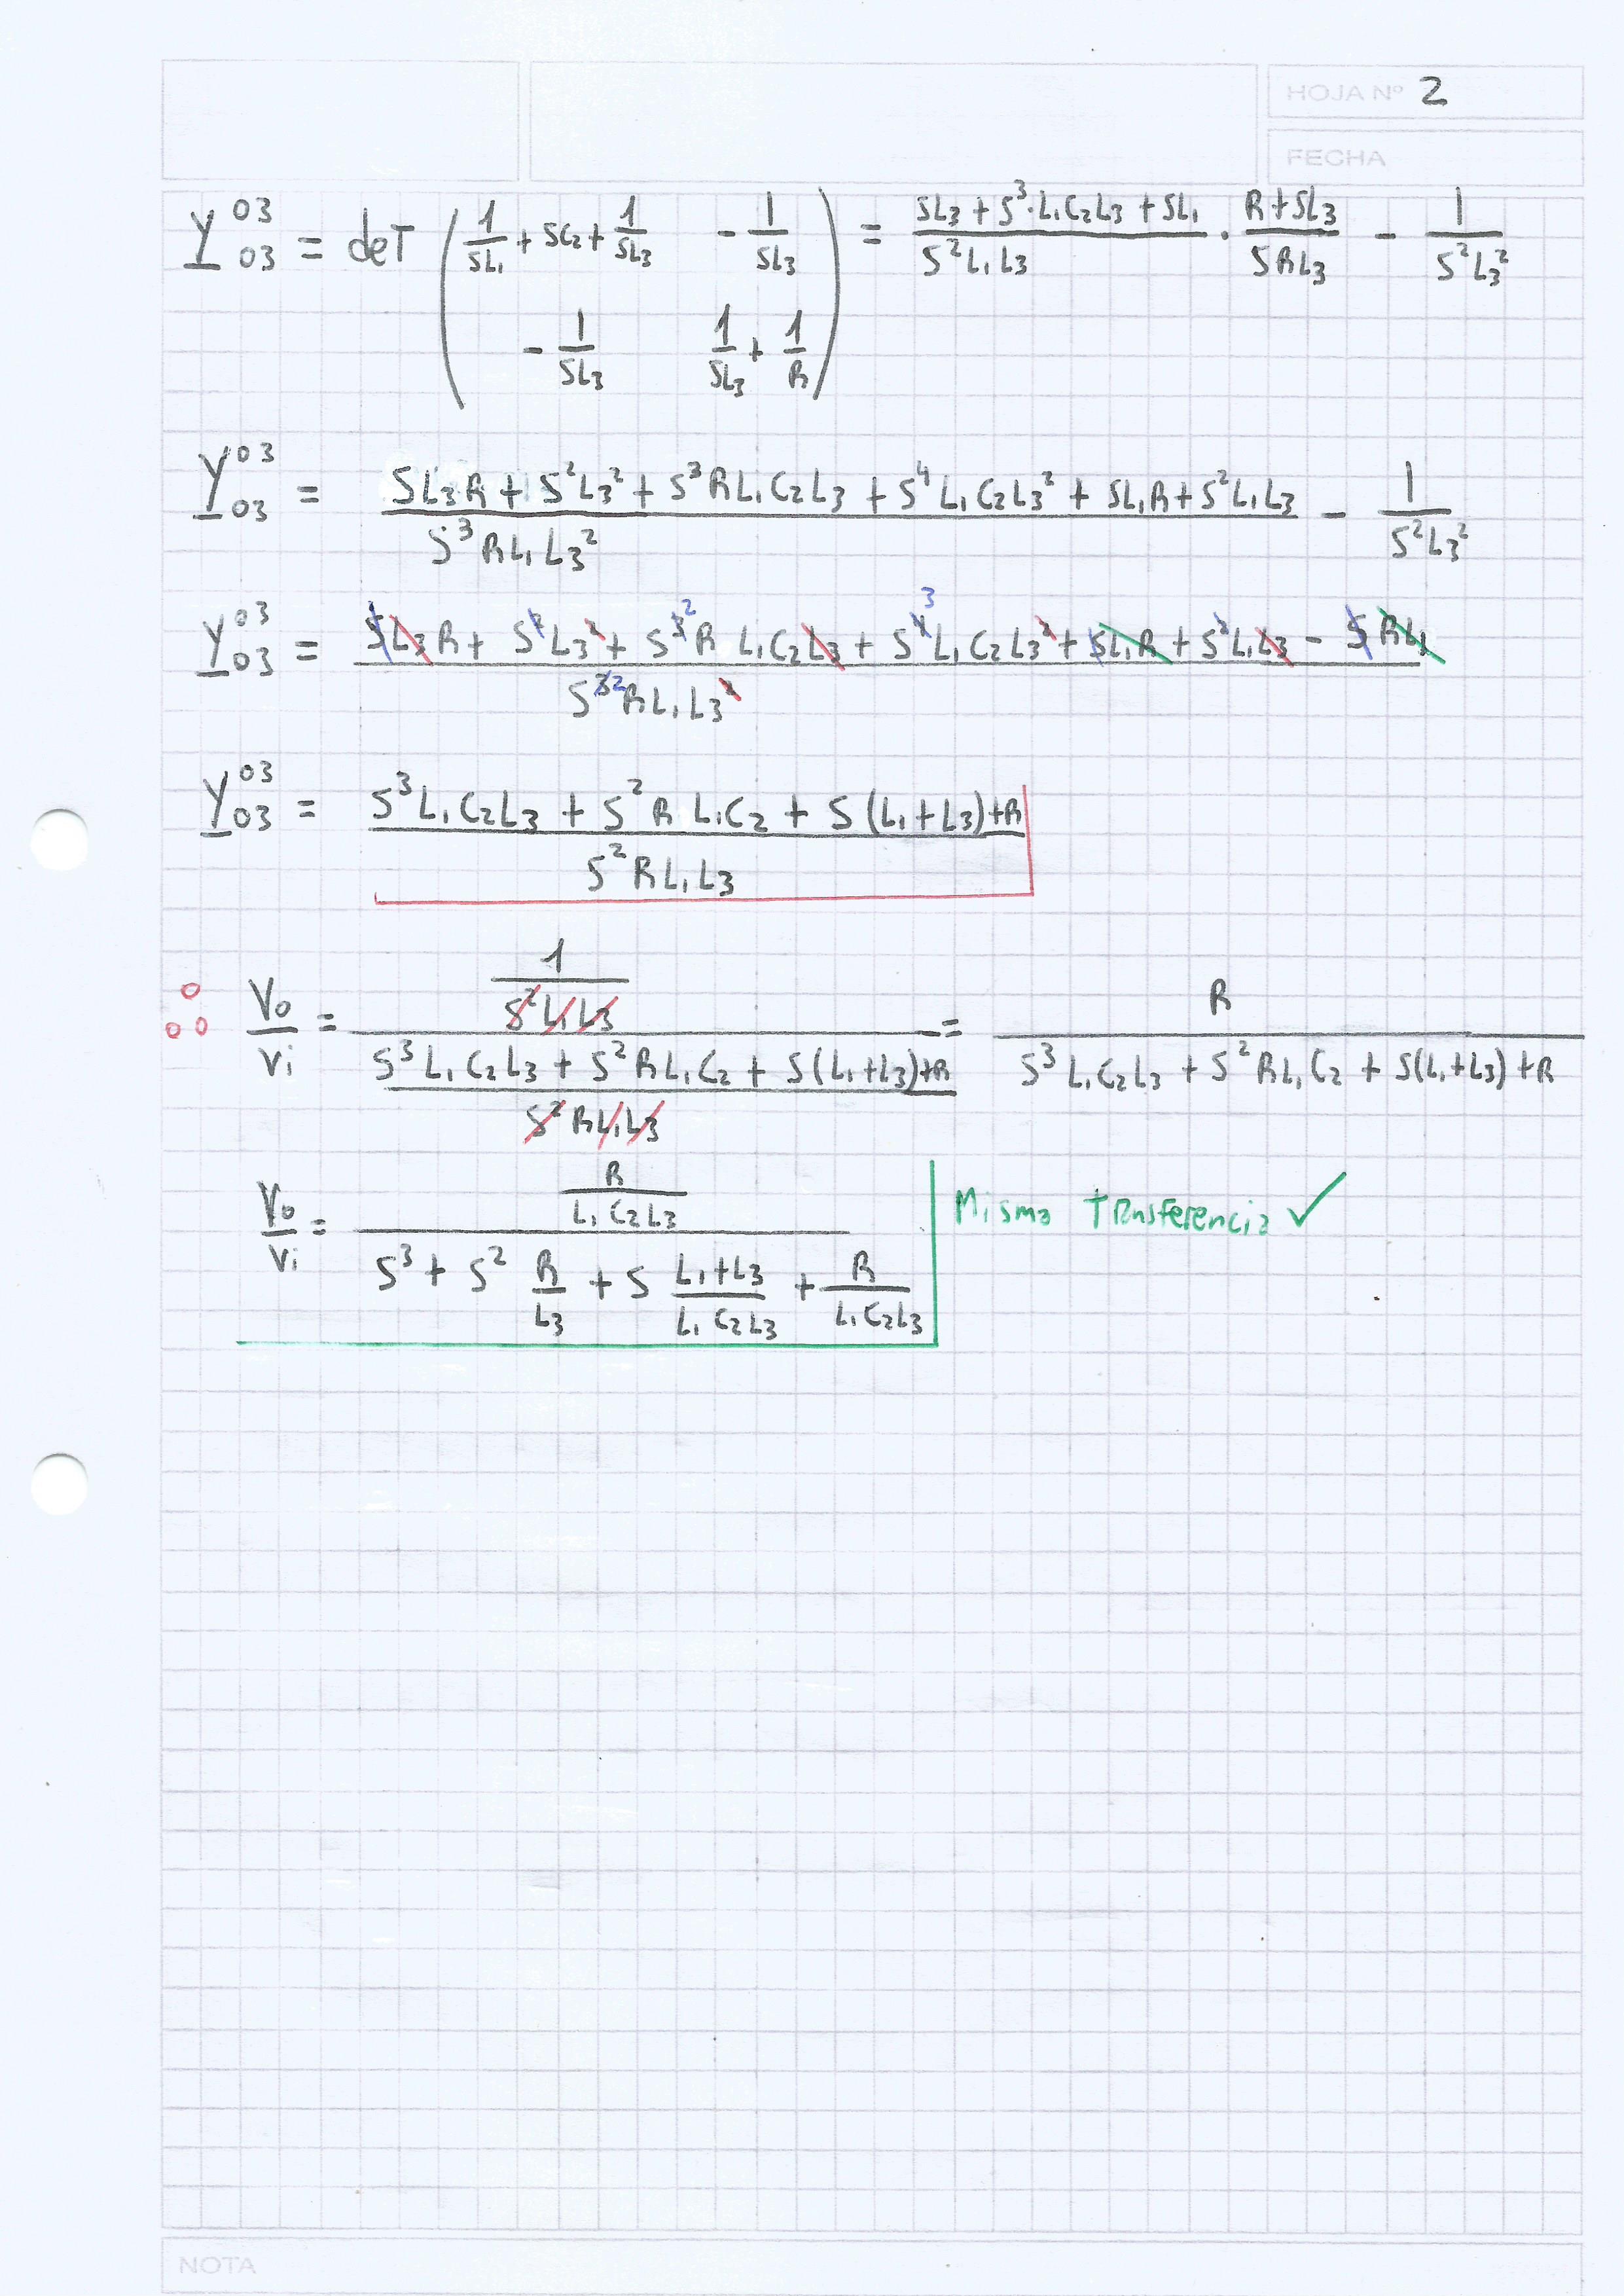 HOJA Nº 2
FECHA
Y^{03}_{03} = deT ( 1/SL₁ + SC₂ + 1/SL₃   - 1/SL₃ ; - 1/SL₃   1/SL₃ + 1/R ) = (SL₃ + S³·L₁C₂L₃ + SL₁)/(S²L₁L₃) · (R+SL₃)/(SRL₃) - 1/(S²L₃²)
Y^{03}_{03} = (SL₃R + S²L₃² + S³RL₁C₂L₃ + S⁴L₁C₂L₃² + SL₁R + S²L₁L₃)/(S³RL₁L₃²) - 1/(S²L₃²)
Y^{03}_{03} = (SL₃R + S²L₃² + S³RL₁C₂L₃ + S⁴L₁C₂L₃² + SL₁R + S²L₁L₃ - SRL₁)/(S³RL₁L₃²)
Y^{03}_{03} = (S³L₁C₂L₃ + S²RL₁C₂ + S(L₁+L₃)+R)/(S²RL₁L₃)
∴ Vo/Vi = (1/(S²L₁L₃))/((S³L₁C₂L₃ + S²RL₁C₂ + S(L₁+L₃)+R)/(S²RL₁L₃)) = R/(S³L₁C₂L₃ + S²RL₁C₂ + S(L₁+L₃)+R)
Vo/Vi = (R/(L₁C₂L₃))/(S³ + S² R/L₃ + S (L₁+L₃)/(L₁C₂L₃) + R/(L₁C₂L₃))   Misma Transferencia ✓
NOTA